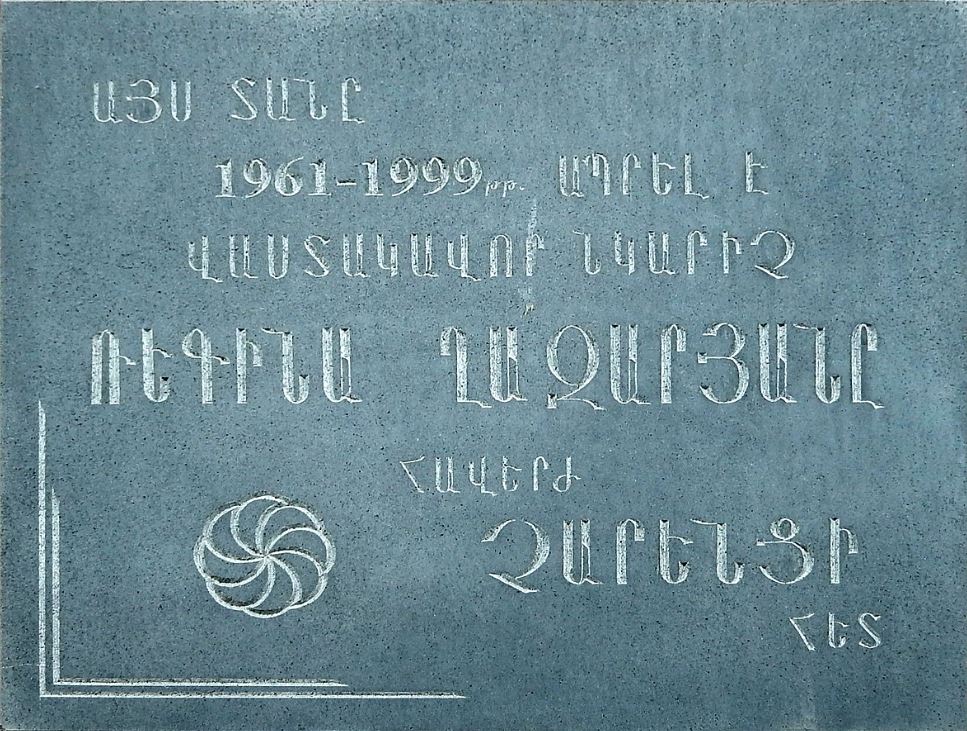 ԱՅՍ ՏԱՆԸ
1961-1999թթ. ԱՊՐԵԼ Է
ՎԱՍՏԱԿԱՎՈՐ ՆԿԱՐԻՉ
ՌԵԳԻՆԱ ՂԱԶԱՐՅԱՆԸ
ՀԱՎԵՐԺ
ՉԱՐԵՆՑԻ
ՀԵՏ